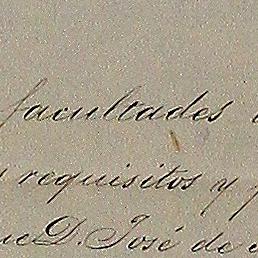 facultades
requisitos y
ue D. José de